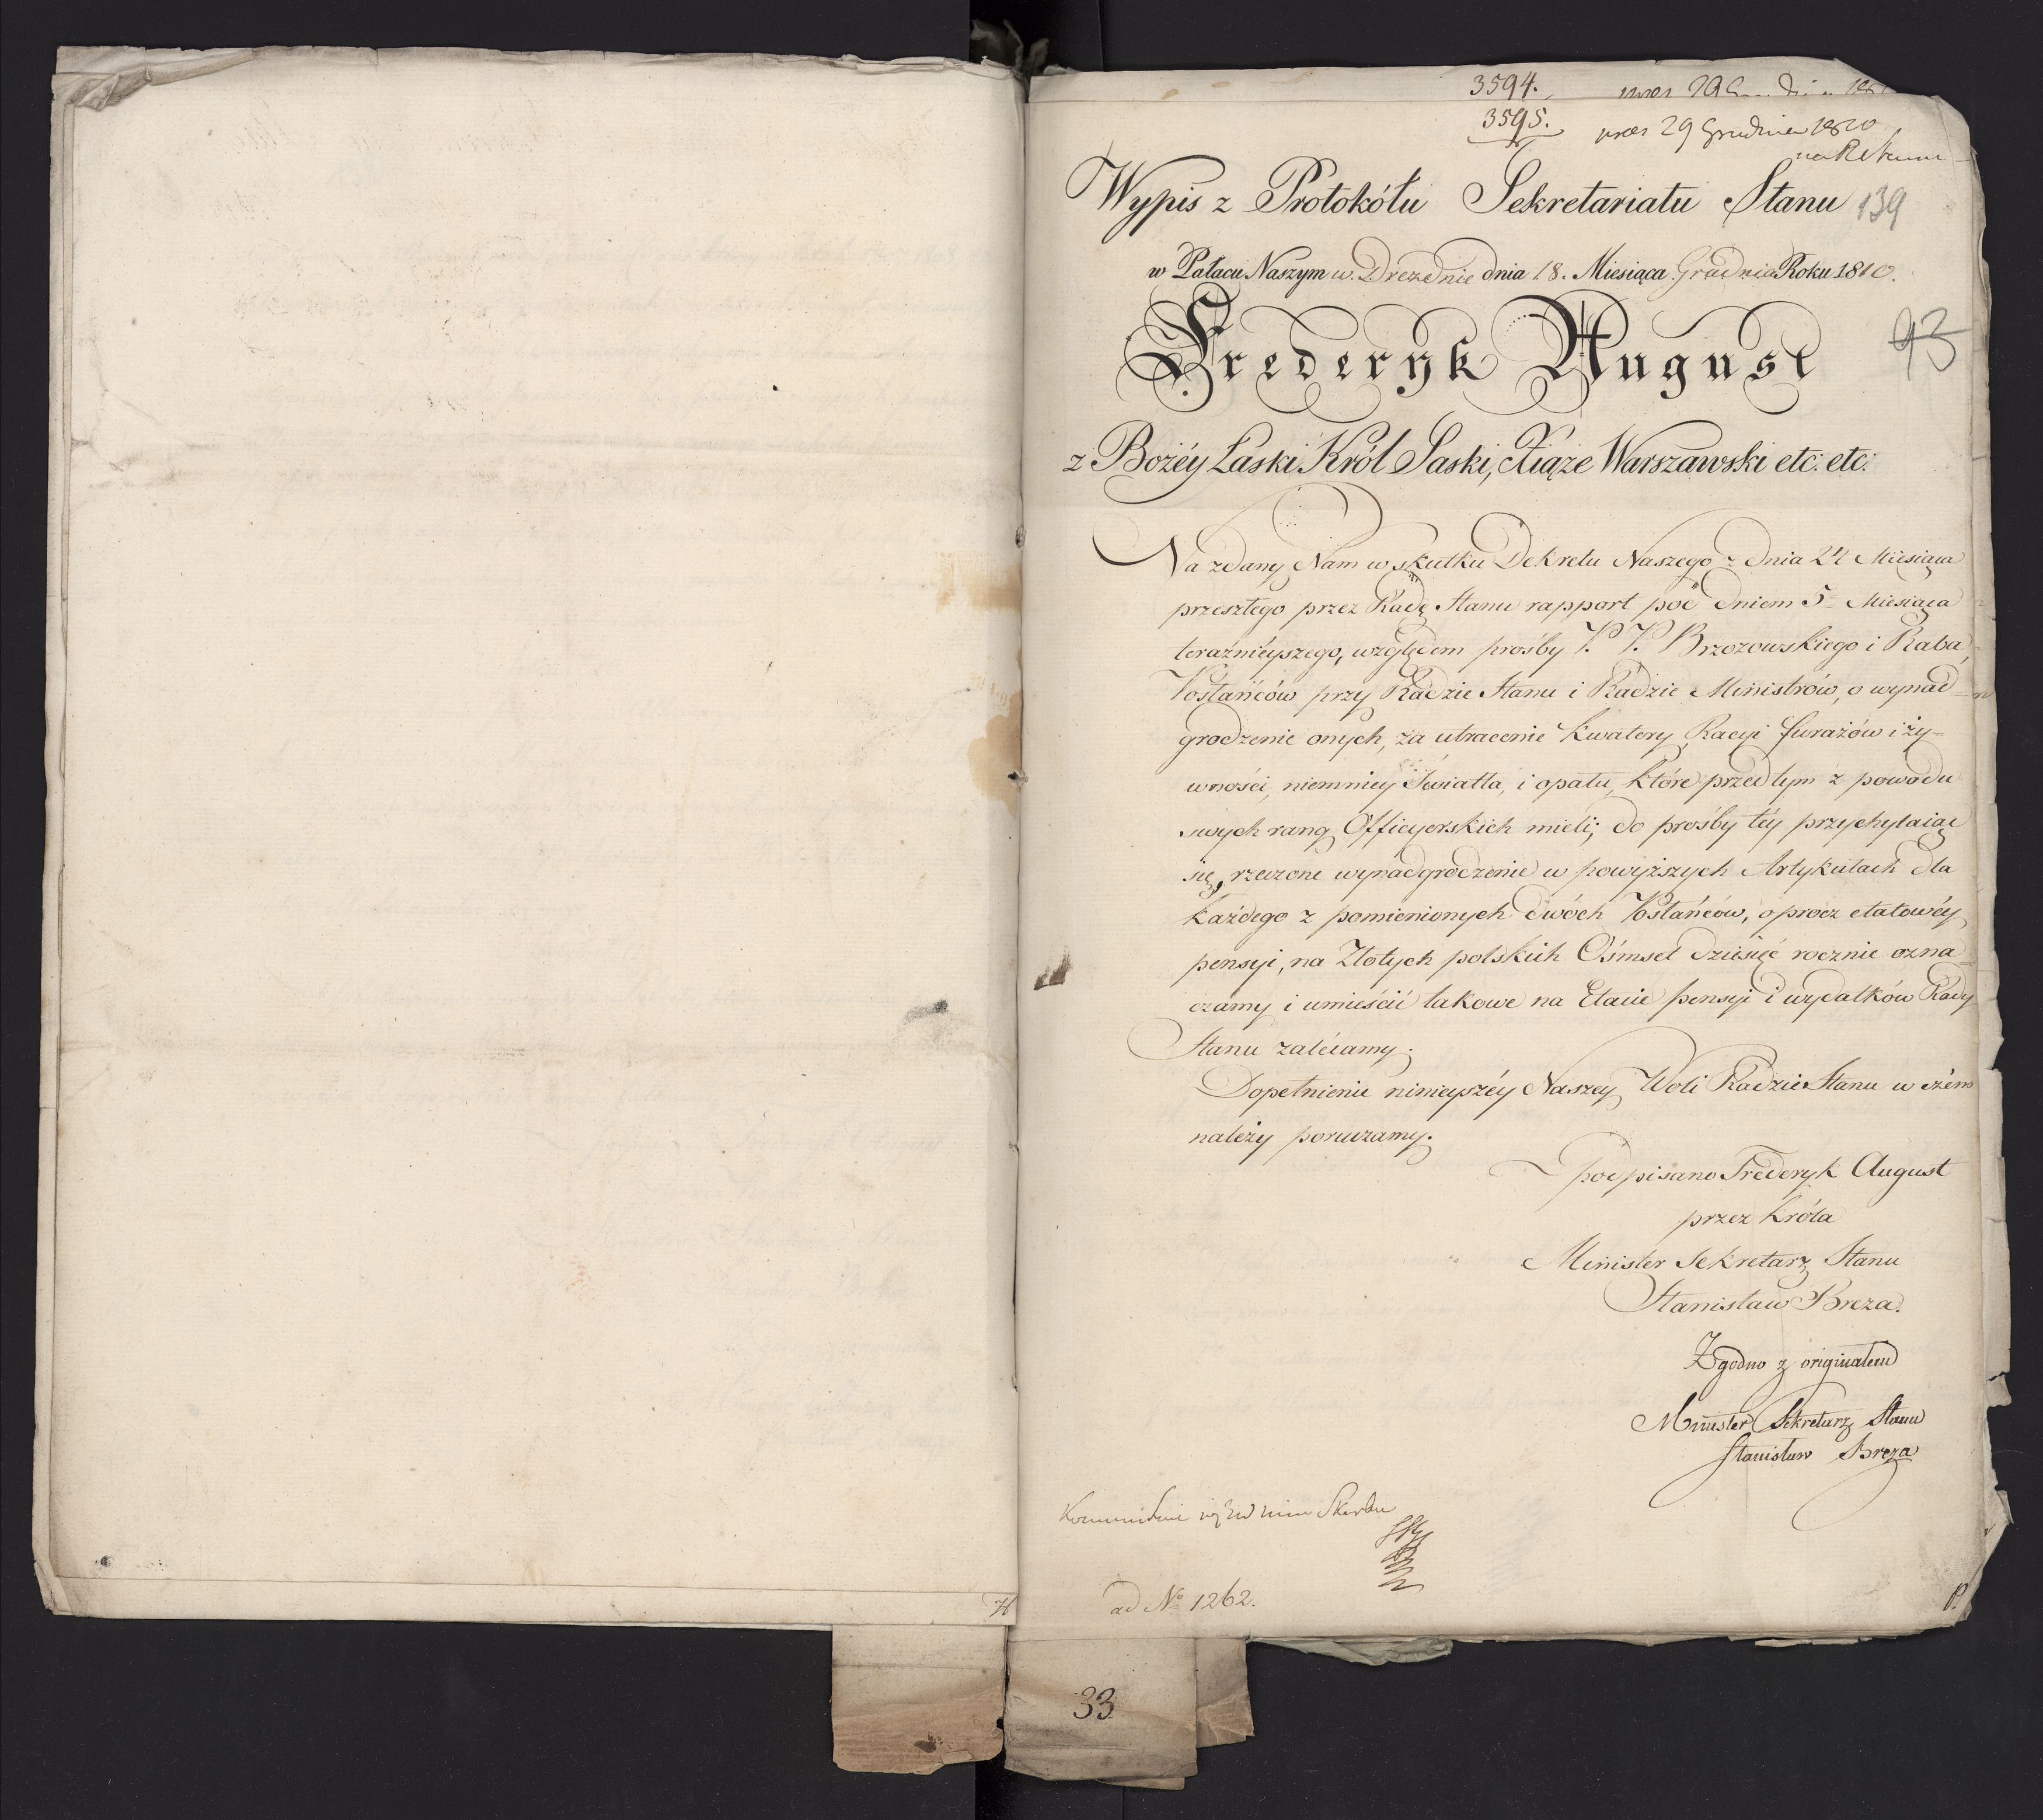 3594.
3595.
29 Grudnia 1810
139
Wypis z Protokółu Sekretariatu Stanu
w Pałacu Naszym w Dreznie dnia 18. Miesiąca Grudnia Roku 1810.
93
Frederyk August
z Bożéy Łaski Król Saski, Xiąże Warszawski etc: etc:
Na zdany Nam w skutku Dekretu Naszego z dnia 24 Miesiąca
przeszłego przez Radę Stanu rapport pod dniem 5 Miesiąca
teraźnieyszego, względem prośby P. P. Brzozowskiego i Raba,
Posłańców przy Radzie Stanu i Radzie Ministrów, o wynad
grodzenie onych, za utracenie kwatery, Racyi furażów i ży=
wności, niemniey Światła, i opału, które przedtym z powodu
swych rang Officyerskich mieli; do prośby téy przychylaiąc
się, rzeczone wynadgrodzenie w powyższych Artykułach dla
każdego z pomienionych dwóch Posłańców, oprocz etatowéy
pensyi, na Złotych polskich Ośmset dziesięć rocznie ozna
czamy i umieścić takowe na Etacie pensyi i wydatków Rady
Stanu zalécamy.
Dopełnienie ninieyszéy Naszey Woli Radzie Stanu w czém
należy poruczamy.
podpisano Frederyk August
przez Króla
Minister Sekretarz Stanu
Stanisław Breza.
Zgodno z originałem
Minister Sekretarz Stanu
Stanisław Breza
Skarbu
ad No 1262.
H
P.
33